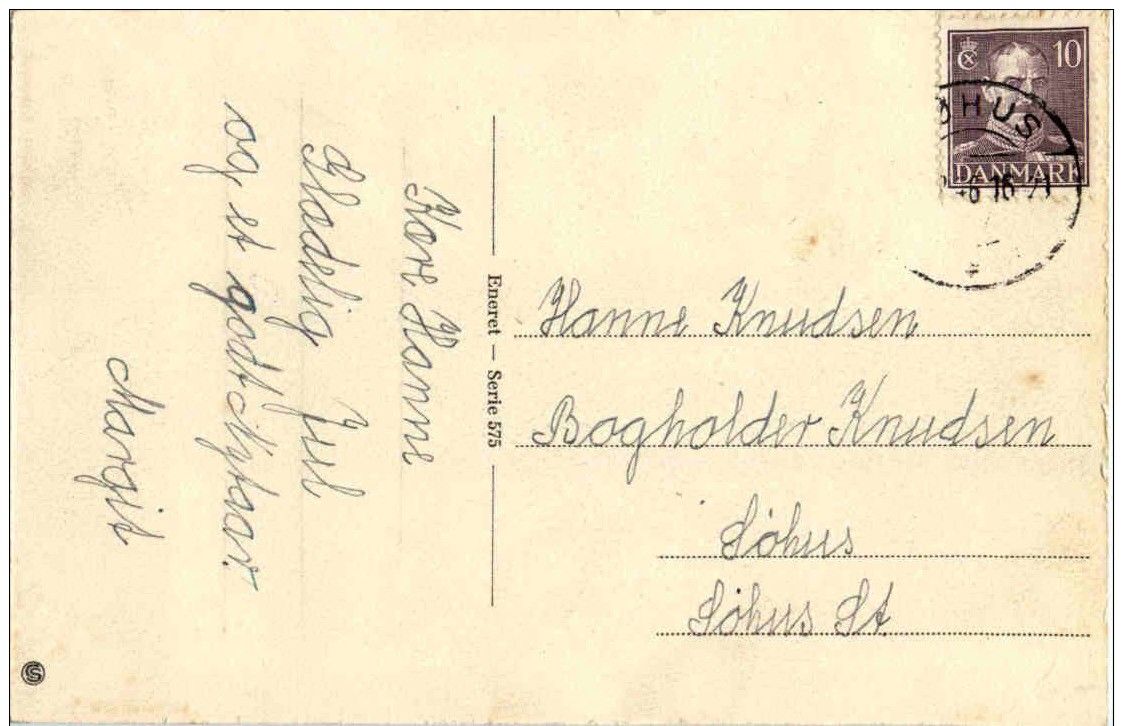 Kære Hanne
Glædelig Jul
og et godt Nytaar.
Margit
Eneret – Serie 575
10
DANMARK
HUS
Hanne Knudsen
Bogholder Knudsen
Söhus
Söhus St